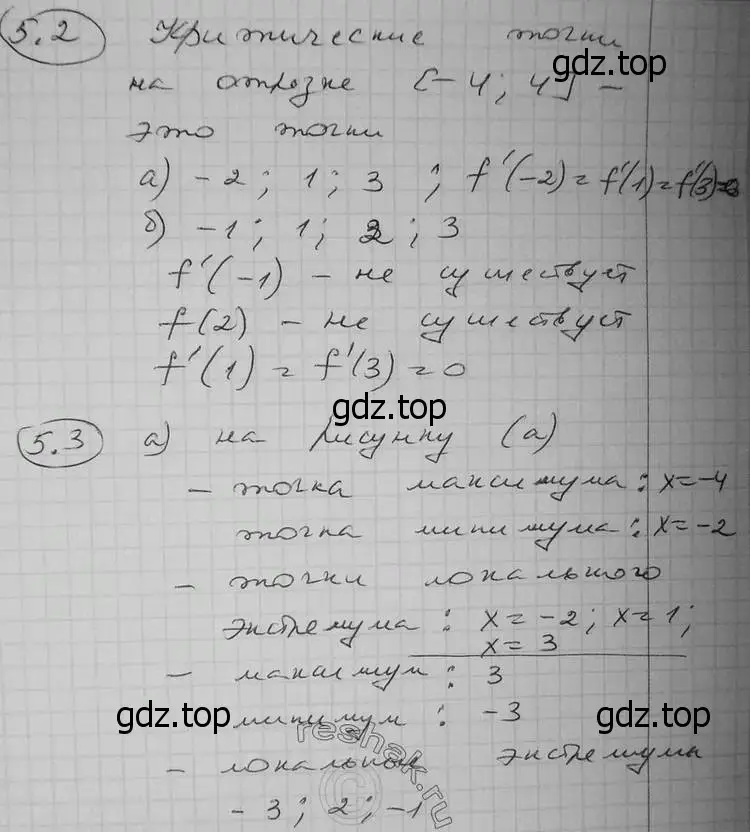 5.2 Критические точки
gdz.top
на отрезке [-4; 4] -
это точки
а) -2; 1; 3 ; f'(-2) = f'(1) = f'(3)=0
gdz.top gdz.top
б) -1; 1; 2; 3
f'(-1) - не существует
f(2) - не существует
f'(1) = f'(3) = 0
gdz.top
5.3 а) на рисунку (а)
- точка максимума: x=-4
точка минимума: x=-2
- точки локального
экстремума: x=-2; x=1;
x=3
- максимум: 3
gdz.top минимум: -3 gdz.top
reshak.ru
- локальные экстремумы
-3; 2; -1
gdz.top